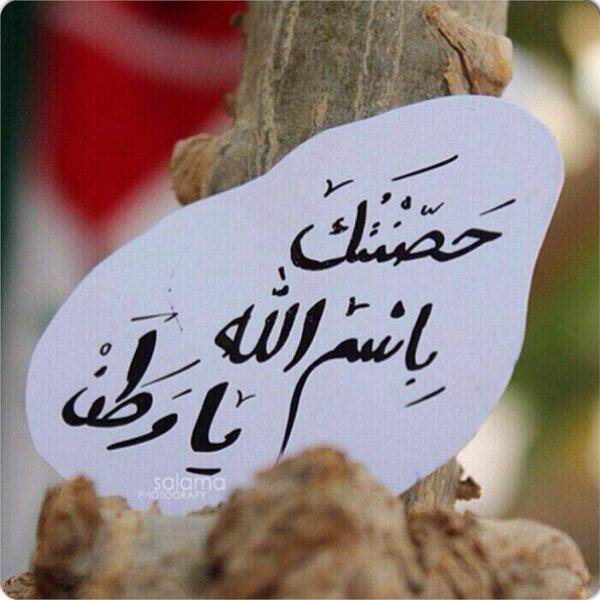 حَصَّنْتُكَ
بِاسْمِ الله
يا وَطَنْ
salama
PHOTOGRAPY